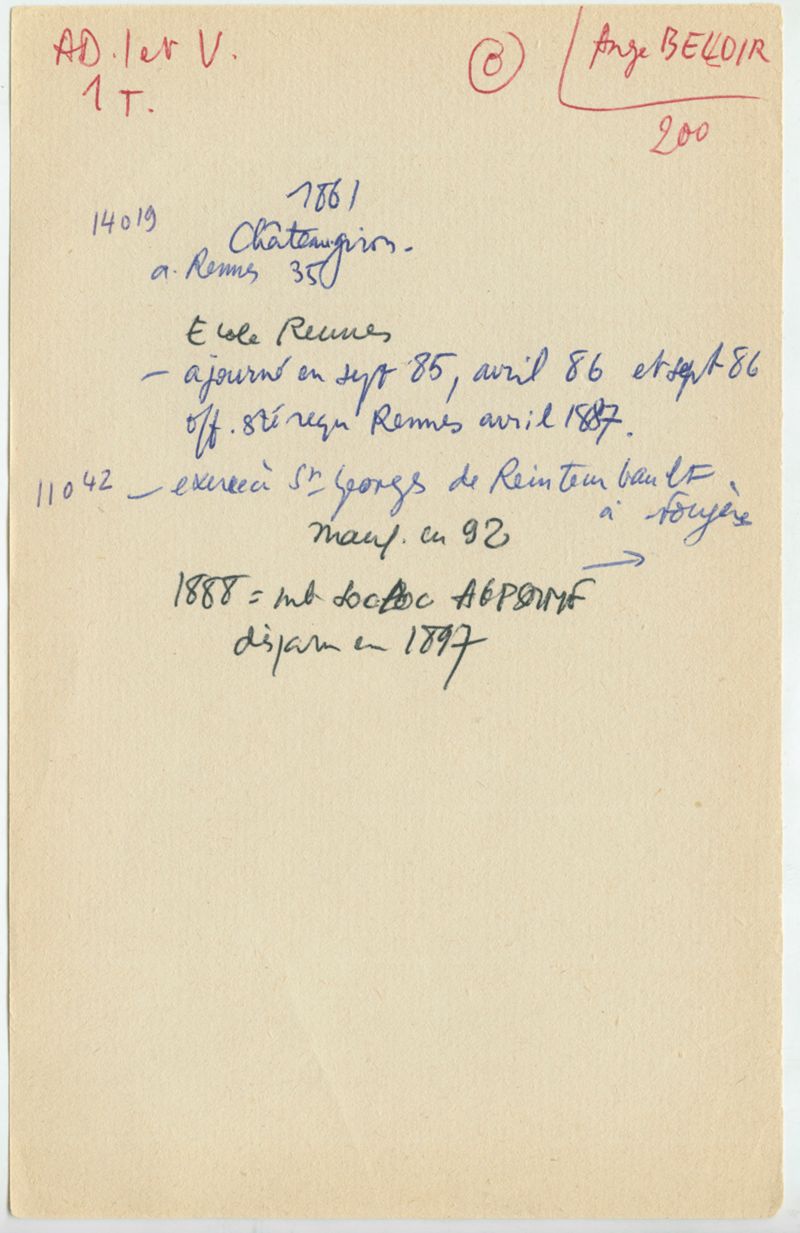 AD. I et V.
1 T.
B
Ange BELLOIR
200
1861
14019
Châteaugiron.
a. Rennes 35
Ecole Rennes
- ajourné en sept 85, avril 86 et sept 86
off. Sté reçu Rennes avril 1887.
11042 - exerce à St Georges de Reintembault.
à Fougère
manf. en 92
→
1888 = mb soc AGPSRMF
disparu en 1897